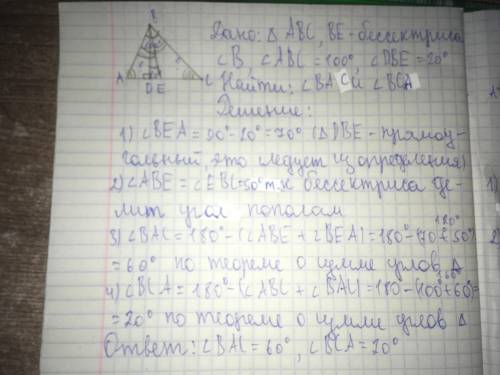 B
A
D E
C
Дано: △ ABC, BE - бессектриса
∠B, ∠ABC = 100°, ∠DBE = 20°
Найти: ∠BAC и ∠BCA
Решение:
1) ∠BEA = 90° - 20° = 70° (△DBE - прямоу-
гольный, это следует из определения)
2) ∠ABE = ∠EBC = 50° т.к бессектриса де-
лит угол пополам
120°
3) ∠BAC = 180° - (∠ABE + ∠BEA) = 180° - (70° + 50°)
= 60° по теореме о сумме углов △
4) ∠BCA = 180° - (∠ABC + ∠BAC) = 180 - (100° + 60°) =
= 20° по теореме о сумме углов △
Ответ: ∠BAC = 60°, ∠BCA = 20°
1)